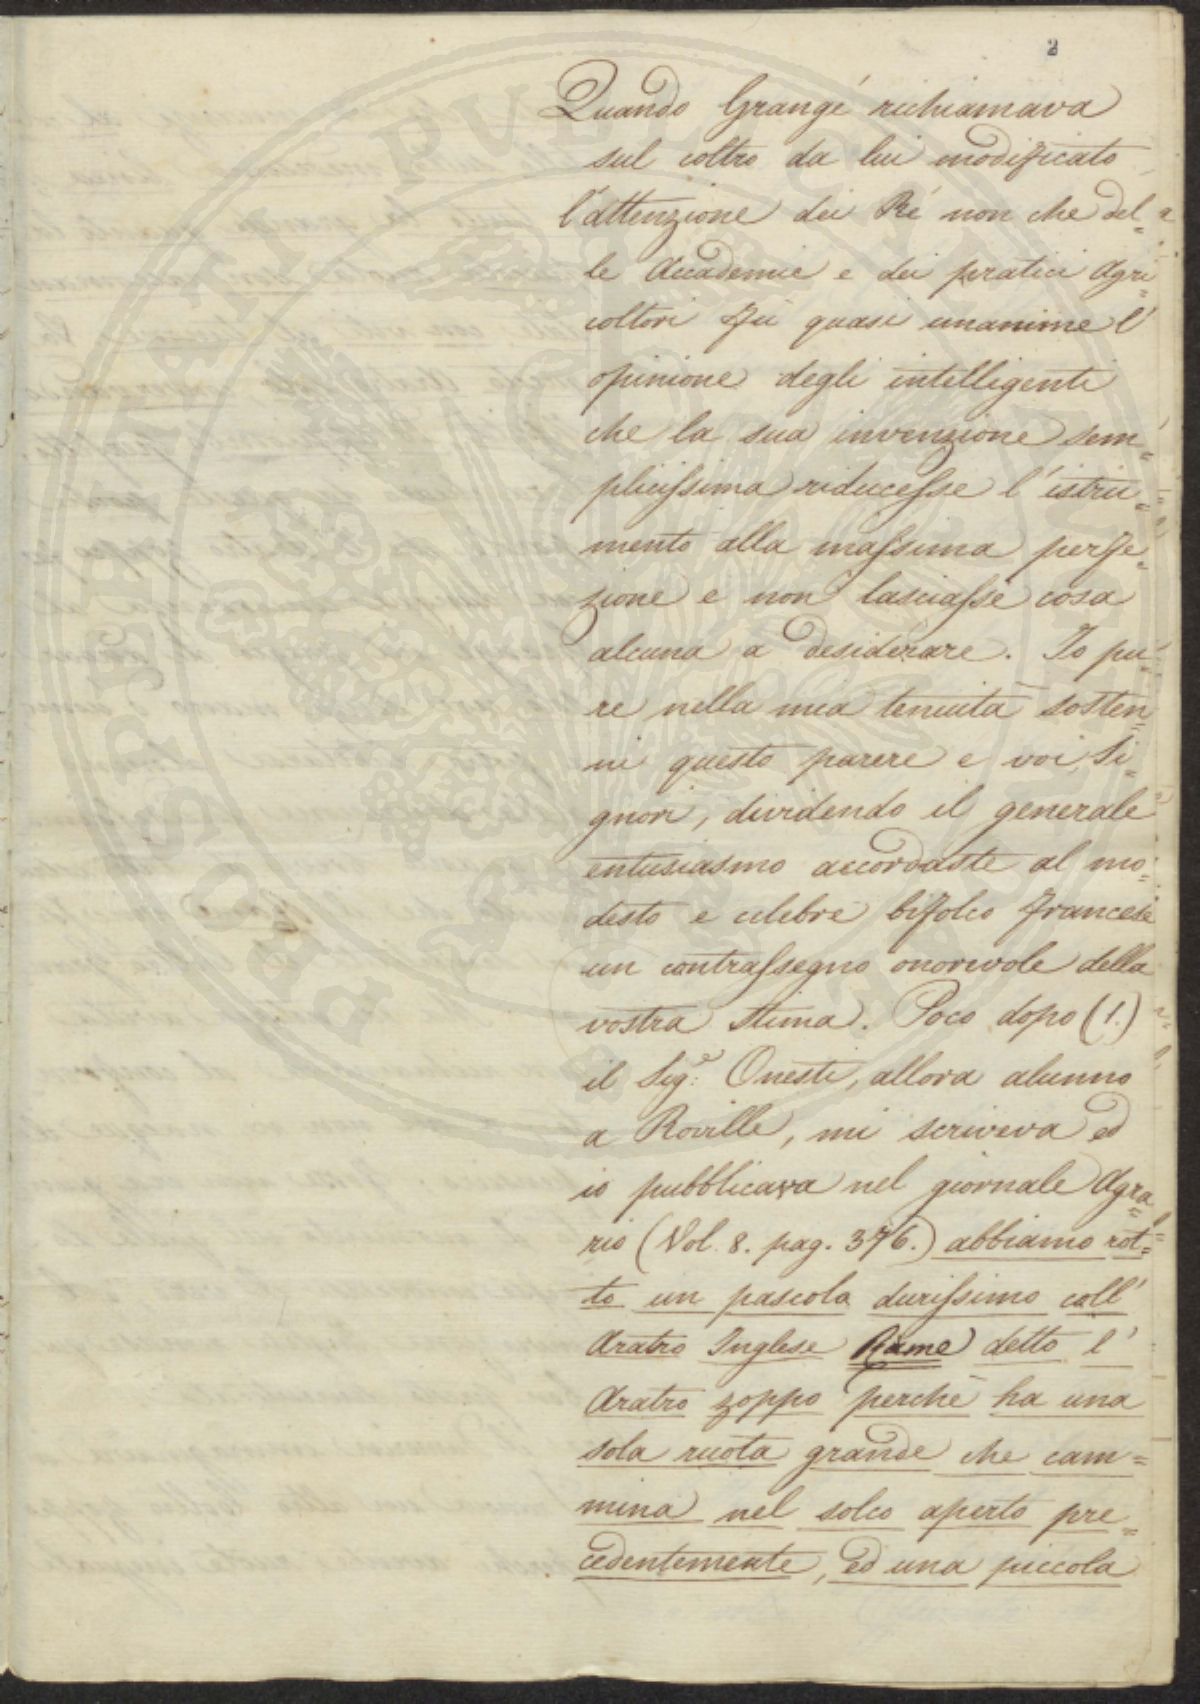 2
Quando Grangé richiamava
sul coltro da lui modificato
l'attenzione dei Rè non che del=
le Accademie e dei pratici Agri=
coltori fù quasi unanime l'
opinione degli intelligenti
che la sua invenzione sem=
plicissima riducesse l'istru=
mento alla massima perfe=
zione e non lasciasse cosa
alcuna a desiderare. Io pu=
re nella mia tenuità sosten=
ni questo parere e voi, Si=
gnori, dividendo il generale
entusiasmo accordaste al mo=
desto e celebre bifolco francese
un contrassegno onorevole della
vostra stima. Poco dopo (1.)
il Sig.e Onesti, allora alunno
a Roville, mi scriveva ed
io pubblicava nel giornale Agra=
rio (Vol. 8. pag. 376.) abbiamo rot=
to un pascolo durissimo coll'
Aratro Inglese Rame detto l'
Aratro zoppo perchè ha una
sola ruota grande che cam=
mina nel solco aperto pre=
cedentemente, ed una piccola
POSPERITATI PVBLICAE